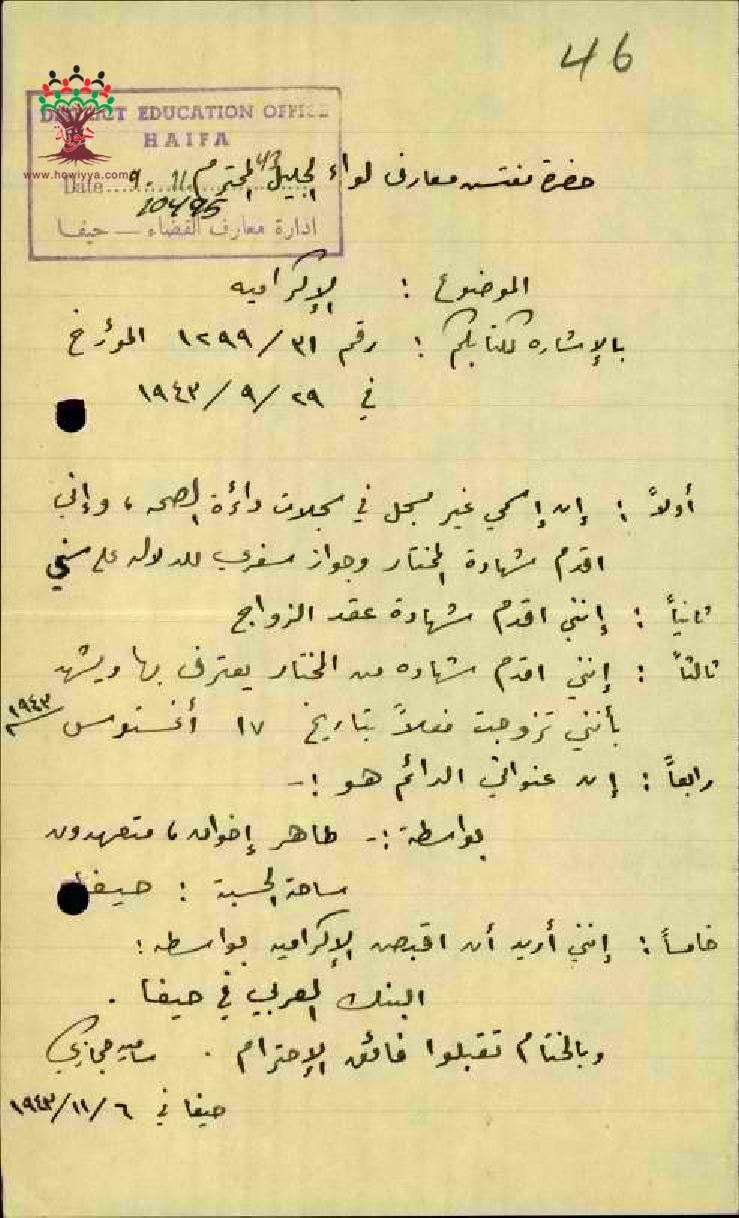 46
DISTRICT EDUCATION OFFICE
HAIFA
www.howiyya.com
Date 9-11-43
10495
ادارة معارف القضاء — حيفا
حضرة مفتش معارف لواء الجليل المحترم
الموضوع : الإكراميه
بالإشاره لكتابكم : رقم ٣١/ ١٢٩٩ المؤرخ
في ٢٩ /٩ /١٩٤٣
أولاً : إن إسمي غير مسجل في سجلات دائرة الصحه ، وإني
اقدم شهادة المختار وجواز سفري للدلاله على سني
ثانياً : إنني اقدم شهادة عقد الزواج
ثالثاً : إنني اقدم شهاده من المختار يعترف بها ويشهد
بأنني تزوجت فعلاً بتاريخ ١٧ أغستوس ١٩٤٣
رابعاً : إن عنواني الدائم هو :-
بواسطة :- طاهر إخوان ، متعهدون
ساحة الحسبة : حيفا
خامساً : إنني أريد أن اقبض الإكراميه بواسطه :
البنك العربي في حيفا .
وبالختام تقبلوا فائق الإحترام . ساميه حجازي
حيفا في ٦ /١١ /١٩٤٣